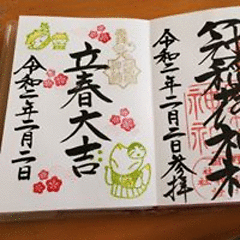 稲荷神社
令和二年二月二日参拝
立春大吉
令和二年二月二日